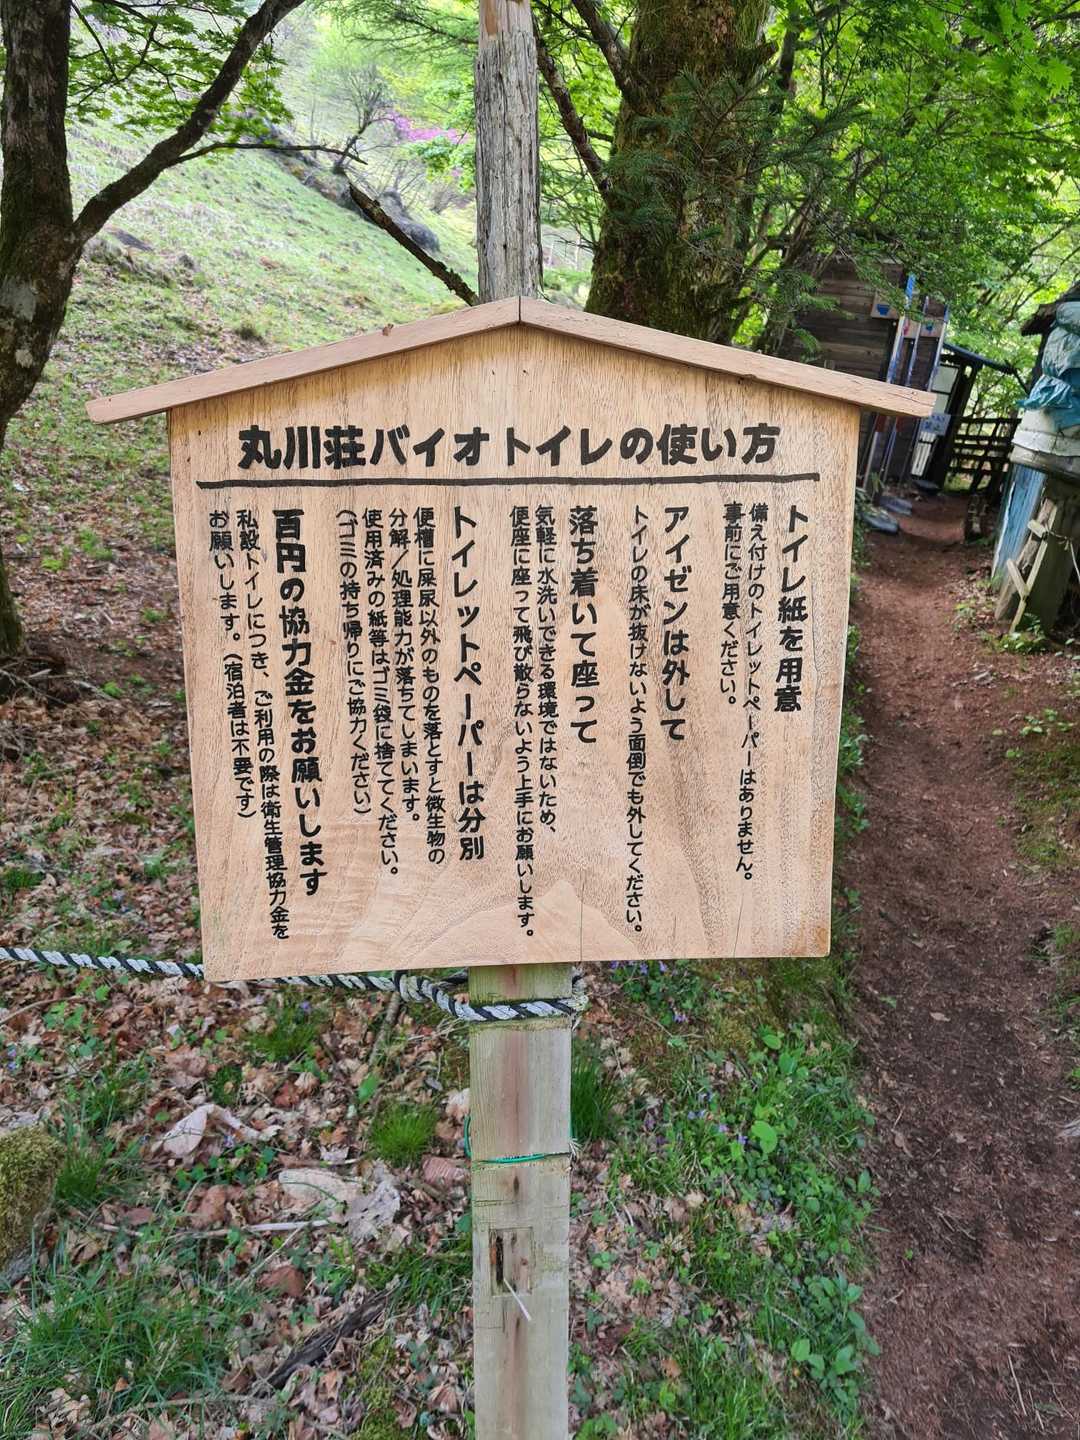 丸川荘バイオトイレの使い方
トイレ紙を用意
備え付けのトイレットペーパーはありません。
事前にご用意ください。
アイゼンは外して
トイレの床が抜けないよう面倒でも外してください。
落ち着いて座って
気軽に水洗いできる環境ではないため、
便座に座って飛び散らないよう上手にお願いします。
トイレットペーパーは分別
便槽に屎尿以外のものを落とすと微生物の
分解/処理能力が落ちてしまいます。
使用済みの紙等はゴミ袋に捨ててください。
(ゴミの持ち帰りにご協力ください)
百円の協力金をお願いします
私設トイレにつき、ご利用の際は衛生管理協力金を
お願いします。(宿泊者は不要です)